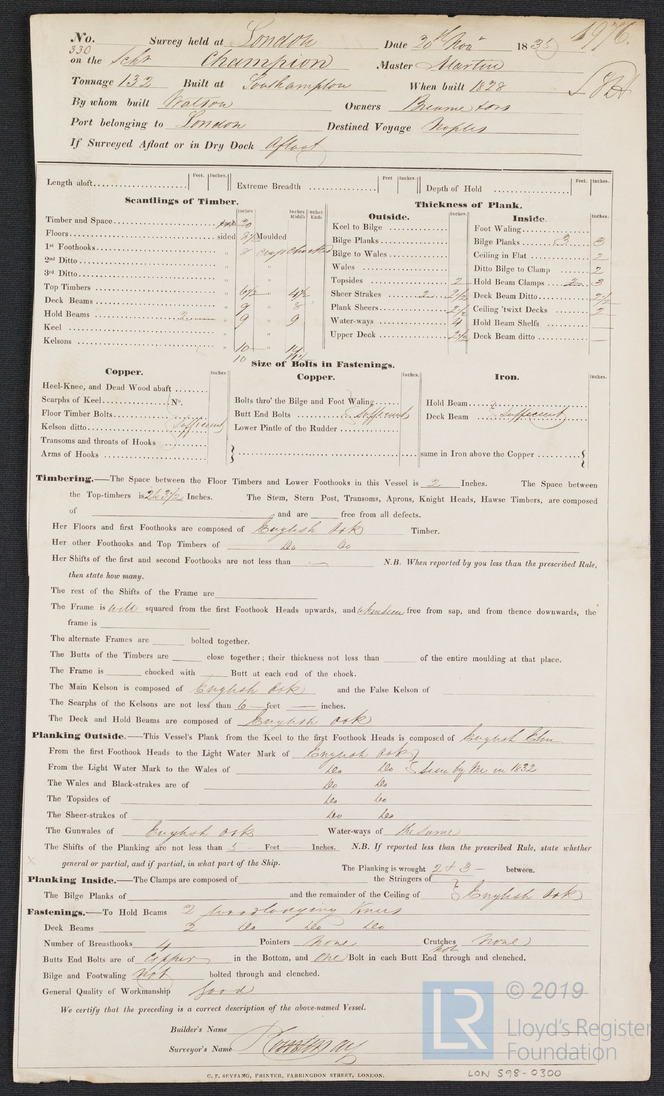 No. 330 Survey held at London Date 20th Novr 1835 1976.
on the Schr Champion Master Martin
Tonnage 132 Built at Southampton When built 1828
By whom built Watson Owners
Port belonging to London Destined Voyage Naples
If Surveyed Afloat or in Dry Dock Afloat
Length aloft Feet. Inches. Extreme Breadth Feet. Inches. Depth of Hold Feet. Inches.
Scantlings of Timber.
Inches. Inches Middle Inches Ends
Timber and Space 20
Floors sided Moulded
1st Foothooks "
2nd Ditto "
3rd Ditto "
Top Timbers " 6½ " 4½
Deck Beams " 9 " 8
Hold Beams 2 " 9 " 9
Keel "
Kelsons " 10
10
Thickness of Plank.
Outside. Inches.
Keel to Bilge
Bilge Planks
Bilge to Wales
Wales
Topsides 2
Sheer Strakes 2 2½
Plank Sheers 2½
Water-ways 4
Upper Deck 2½
Inside. Inches.
Foot Waling
Bilge Planks 3 3
Ceiling in Flat 2
Ditto Bilge to Clamp 2
Hold Beam Clamps 2 3
Deck Beam Ditto 2½
Ceiling 'twixt Decks 2
Hold Beam Shelfs
Deck Beam ditto
Size of Bolts in Fastenings.
Copper. Inches.
Heel-Knee, and Dead Wood abaft
Scarphs of Keel No.
Floor Timber Bolts
Kelson ditto Sufficient
Transoms and throats of Hooks
Arms of Hooks
Copper. Inches.
Bolts thro' the Bilge and Foot Waling
Butt End Bolts Sufficient
Lower Pintle of the Rudder
Iron. Inches.
Hold Beam
Deck Beam Sufficient
same in Iron above the Copper
Timbering.—The Space between the Floor Timbers and Lower Foothooks in this Vessel is 2 Inches. The Space between
the Top-timbers is 2 & 2½ Inches. The Stem, Stern Post, Transoms, Aprons, Knight Heads, Hawse Timbers, are composed
of and are free from all defects.
Her Floors and first Foothooks are composed of English Oak Timber.
Her other Foothooks and Top Timbers of Do Do
Her Shifts of the first and second Foothooks are not less than N.B. When reported by you less than the prescribed Rule,
then state how many.
The rest of the Shifts of the Frame are
The Frame is well squared from the first Foothook Heads upwards, and when seen free from sap, and from thence downwards, the
frame is
The alternate Frames are bolted together.
The Butts of the Timbers are close together; their thickness not less than of the entire moulding at that place.
The Frame is chocked with Butt at each end of the chock.
The Main Kelson is composed of English Oak and the False Kelson of
The Scarphs of the Kelsons are not less than 6 feet inches.
The Deck and Hold Beams are composed of English Oak
Planking Outside.—This Vessel's Plank from the Keel to the first Foothook Heads is composed of English Elm
From the first Foothook Heads to the Light Water Mark of English Oak
From the Light Water Mark to the Wales of Do Do Seen by Me in 1832
The Wales and Black-strakes are of Do Do
The Topsides of Do Do
The Sheer-strakes of Do Do
The Gunwales of English Oak Water-ways of the same
The Shifts of the Planking are not less than 5 Feet Inches. N.B. If reported less than the prescribed Rule, state whether
general or partial, and if partial, in what part of the Ship. The Planking is wrought 2 & 3 between.
Planking Inside.—The Clamps are composed of the Stringers of
The Bilge Planks of and the remainder of the Ceiling of English Oak
Fastenings.—To Hold Beams 2 wood lodging Knees
Deck Beams 2 Do Do Do
Number of Breasthooks 4 Pointers None Crutches None
Butts End Bolts are of Copper in the Bottom, and One Bolt in each Butt End not through and clenched.
Bilge and Footwaling Not bolted through and clenched.
General Quality of Workmanship Good
We certify that the preceding is a correct description of the above-named Vessel.
Builder's Name
Surveyor's Name
C. F. SEYFANG, PRINTER, FARRINGDON STREET, LONDON.
LR © 2019
Lloyd's Register
Foundation
LON 598-0300